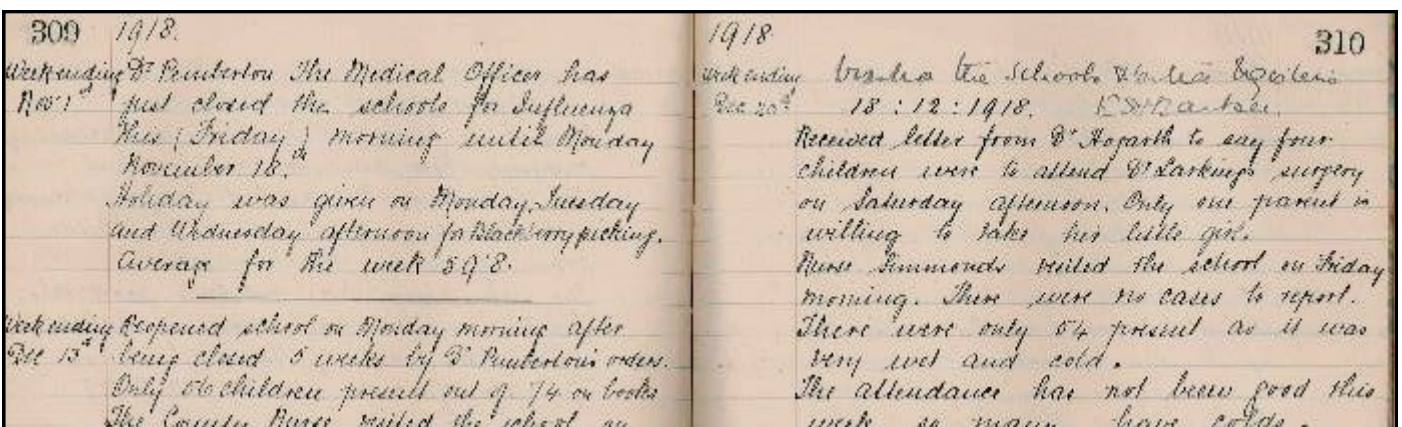 309 1918.
Week ending Dr Pemberton The Medical Officer has
Nov 1st just closed the schools for Influenza
this (Friday) morning until Monday
November 18th.
Holiday was given on Monday, Tuesday
and Wednesday afternoon for Blackberry picking.
Average for the week 59.8.
Week ending Reopened school on Monday morning after
Dec 13th being closed 5 weeks by Dr Pemberton's orders.
Only 56 children present out of 74 on books
The County Nurse visited the school on
1918 310
Week ending the Schools
Dec 20th 18:12:1918.
Received letter from Dr Hogarth to say four
children were to attend Dr Larking's surgery
on Saturday afternoon. Only one parent is
willing to take her little girl.
Nurse Simmonds visited the school on Friday
morning. There were no cases to report.
There were only 54 present as it was
very wet and cold.
The attendance has not been good this
week so many have colds.